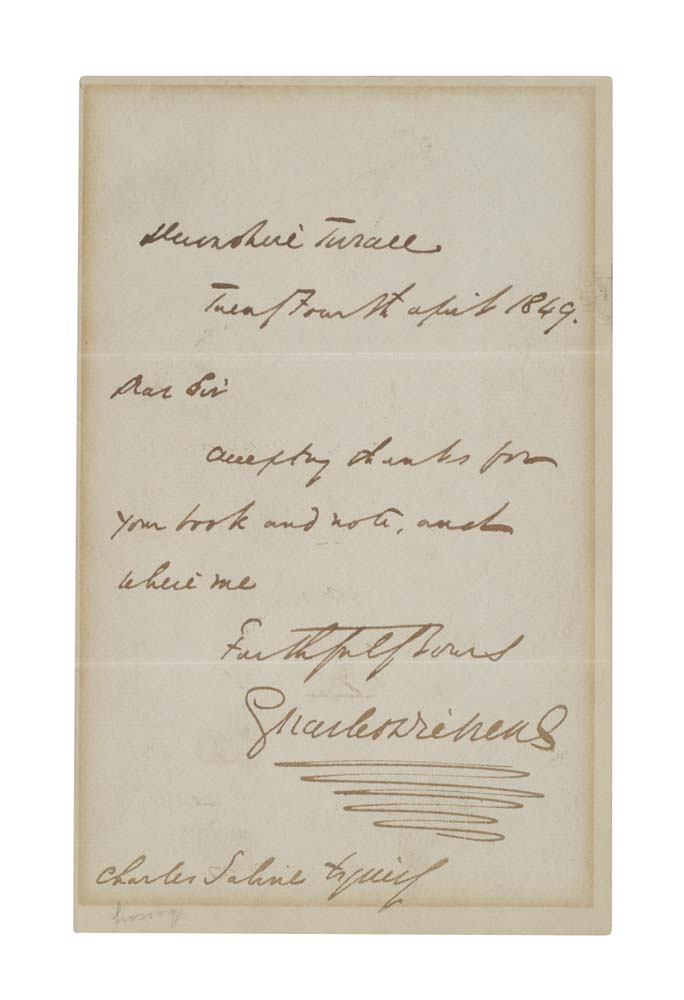 Devonshire Terrace
Twenty Fourth April 1849.
Dear Sir
Accept my thanks for
your book and note, and
believe me
Faithfully Yours
Charles Dickens
Charles Sabine Esquire